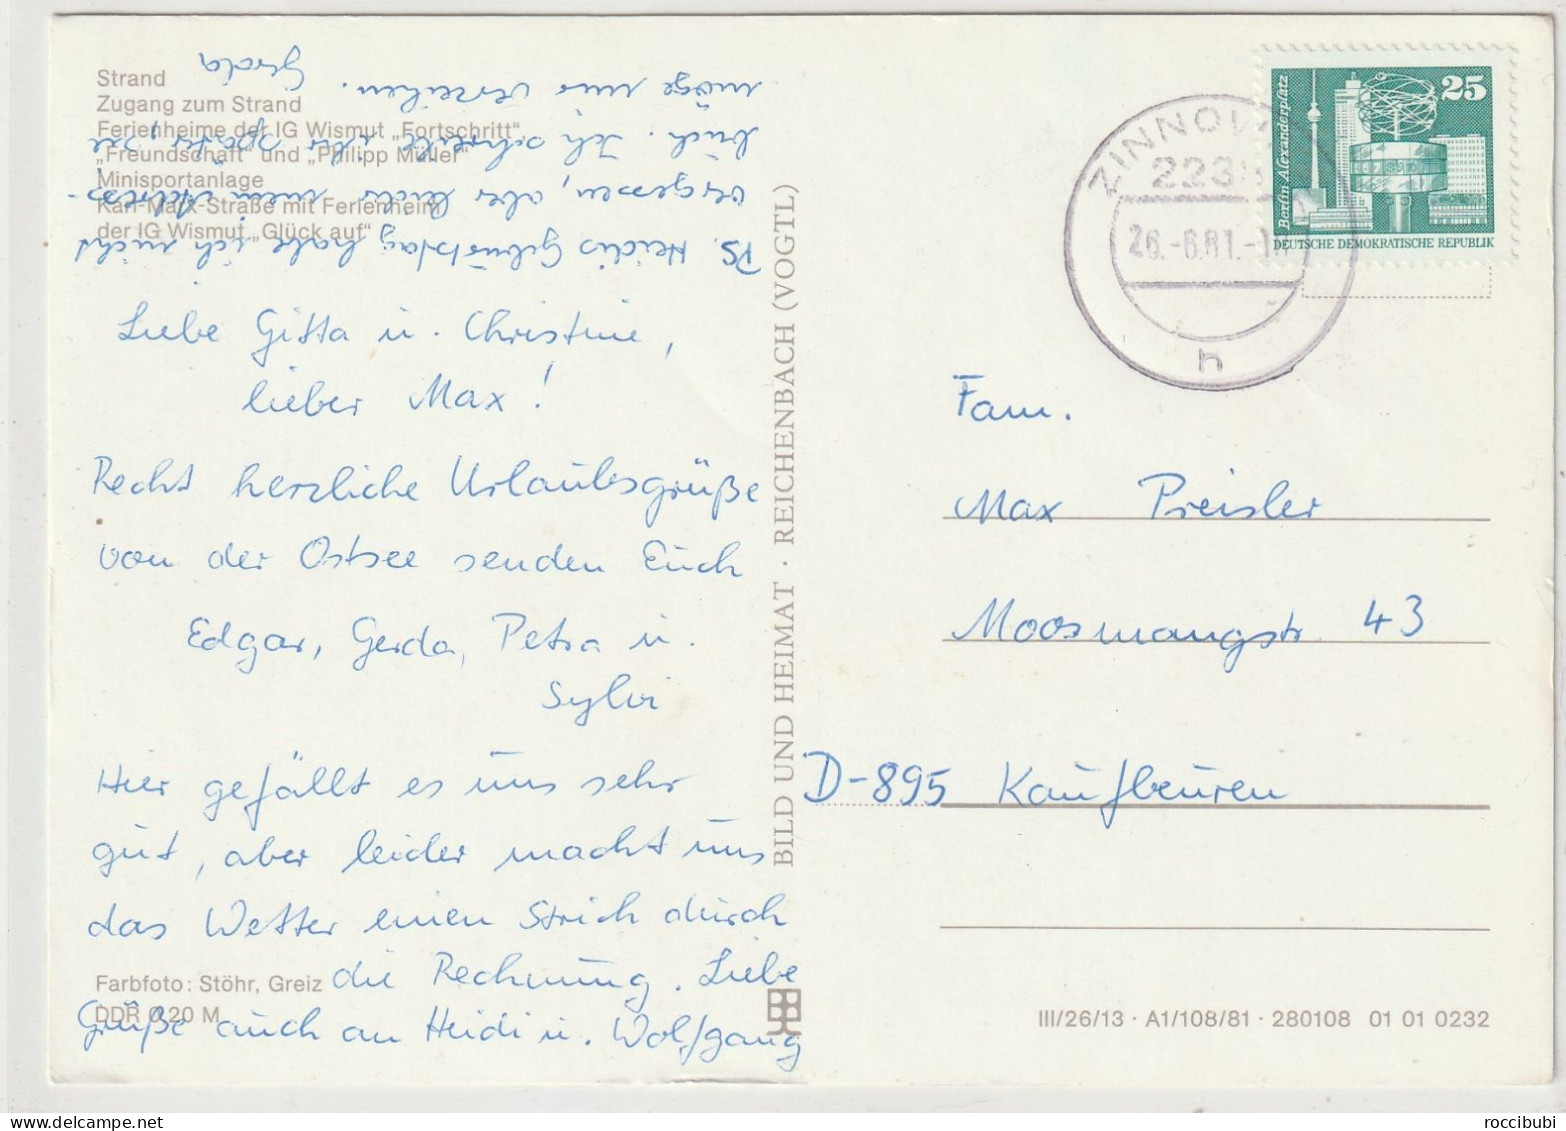 Strand
Zugang zum Strand
Ferienheime der IG Wismut „Fortschritt“,
„Freundschaft“ und „Philipp Müller“
Minisportanlage
Karl-Marx-Straße mit Ferienheim
der IG Wismut „Glück auf“
Liebe Gitta u. Christine,
lieber Max!
Recht herzliche Urlaubsgrüße
von der Ostsee senden Euch
Edgar, Gerda, Petra u.
Sylvi
Hier gefällt es uns sehr
gut, aber leider macht uns
das Wetter einen Strich durch
die Rechnung. Liebe
Grüße auch an Heidi u. Wolfgang
PS. Heidis Geburtstag habe ich nicht
vergessen, aber leider mein Adress-
buch. Ich schreibe ihr später, sie
möge uns verzeihen.
Gerda
Farbfoto: Stöhr, Greiz
DDR 0,20 M
BILD UND HEIMAT · REICHENBACH (VOGTL)
ZINNOWITZ
223
26.-8.81.-1
h
Berlin-Alexanderplatz
25
DEUTSCHE DEMOKRATISCHE REPUBLIK
Fam.
Max Preisler
Moosmangstr. 43
D-895 Kaufbeuren
III/26/13 · A1/108/81 · 280108 01 01 0232
roccibubi